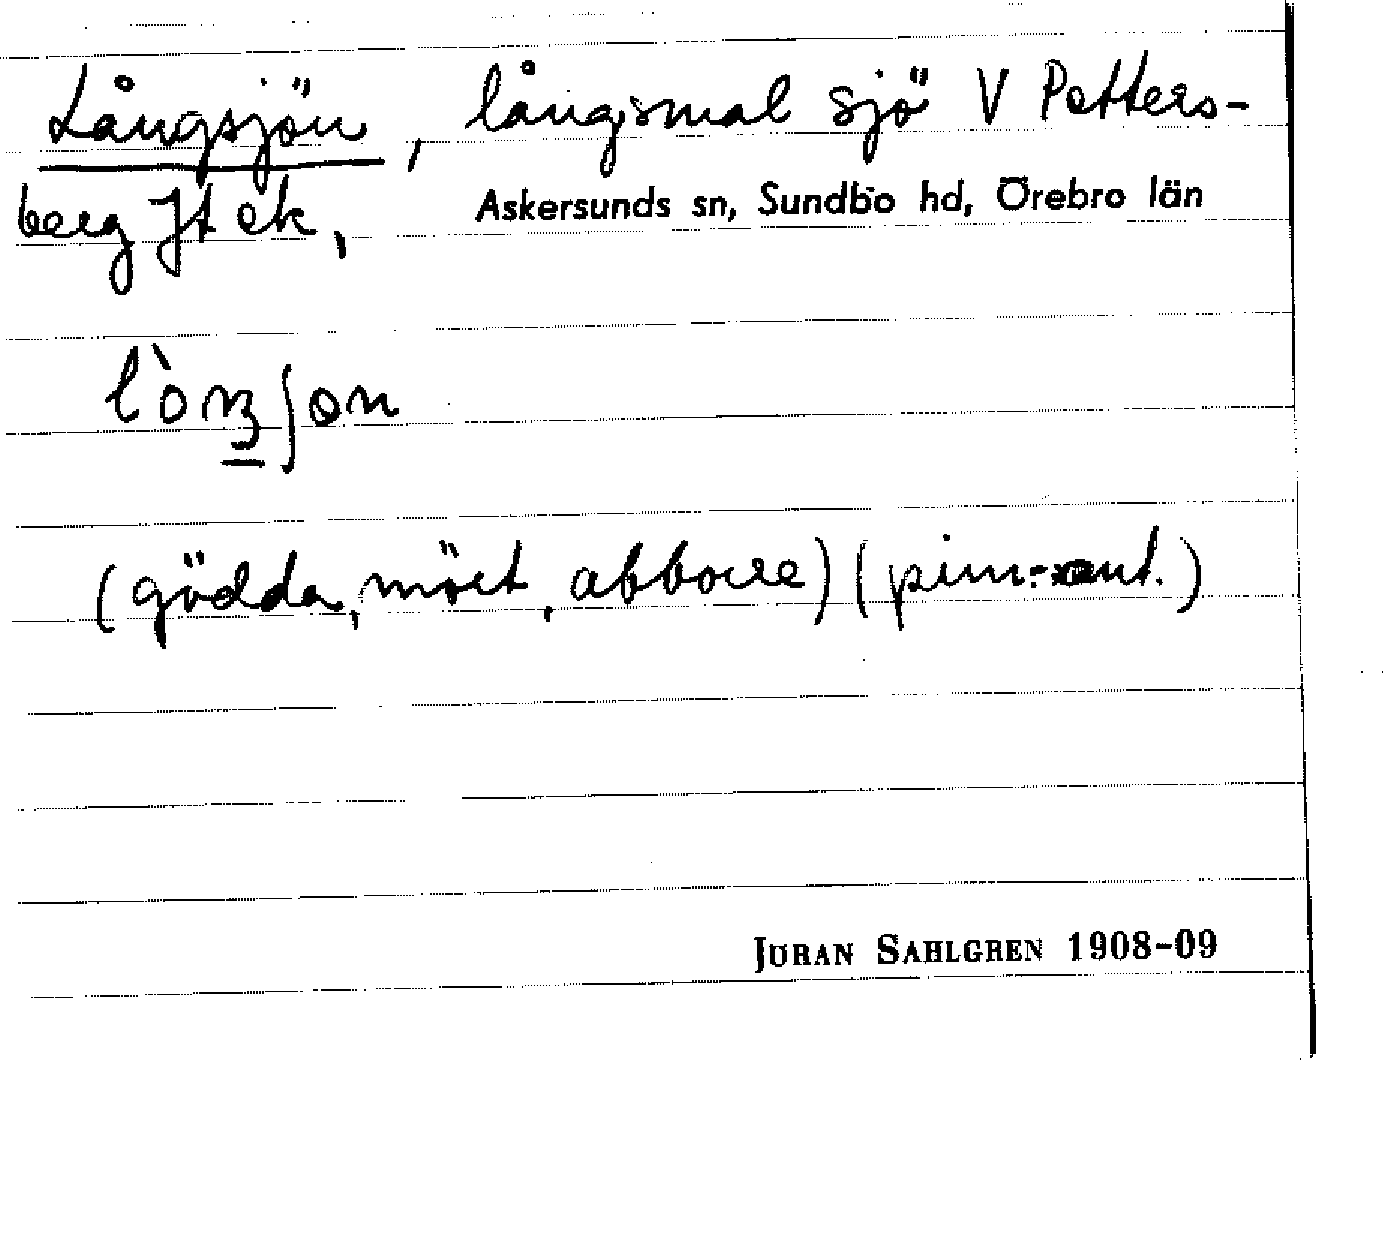 Långsjön, långsmal sjö V Petters-
berg Jt ek, Askersunds sn, Sundbo hd, Örebro län
(gädda, mört, abborre)
JÖRAN SAHLGREN 1908-09